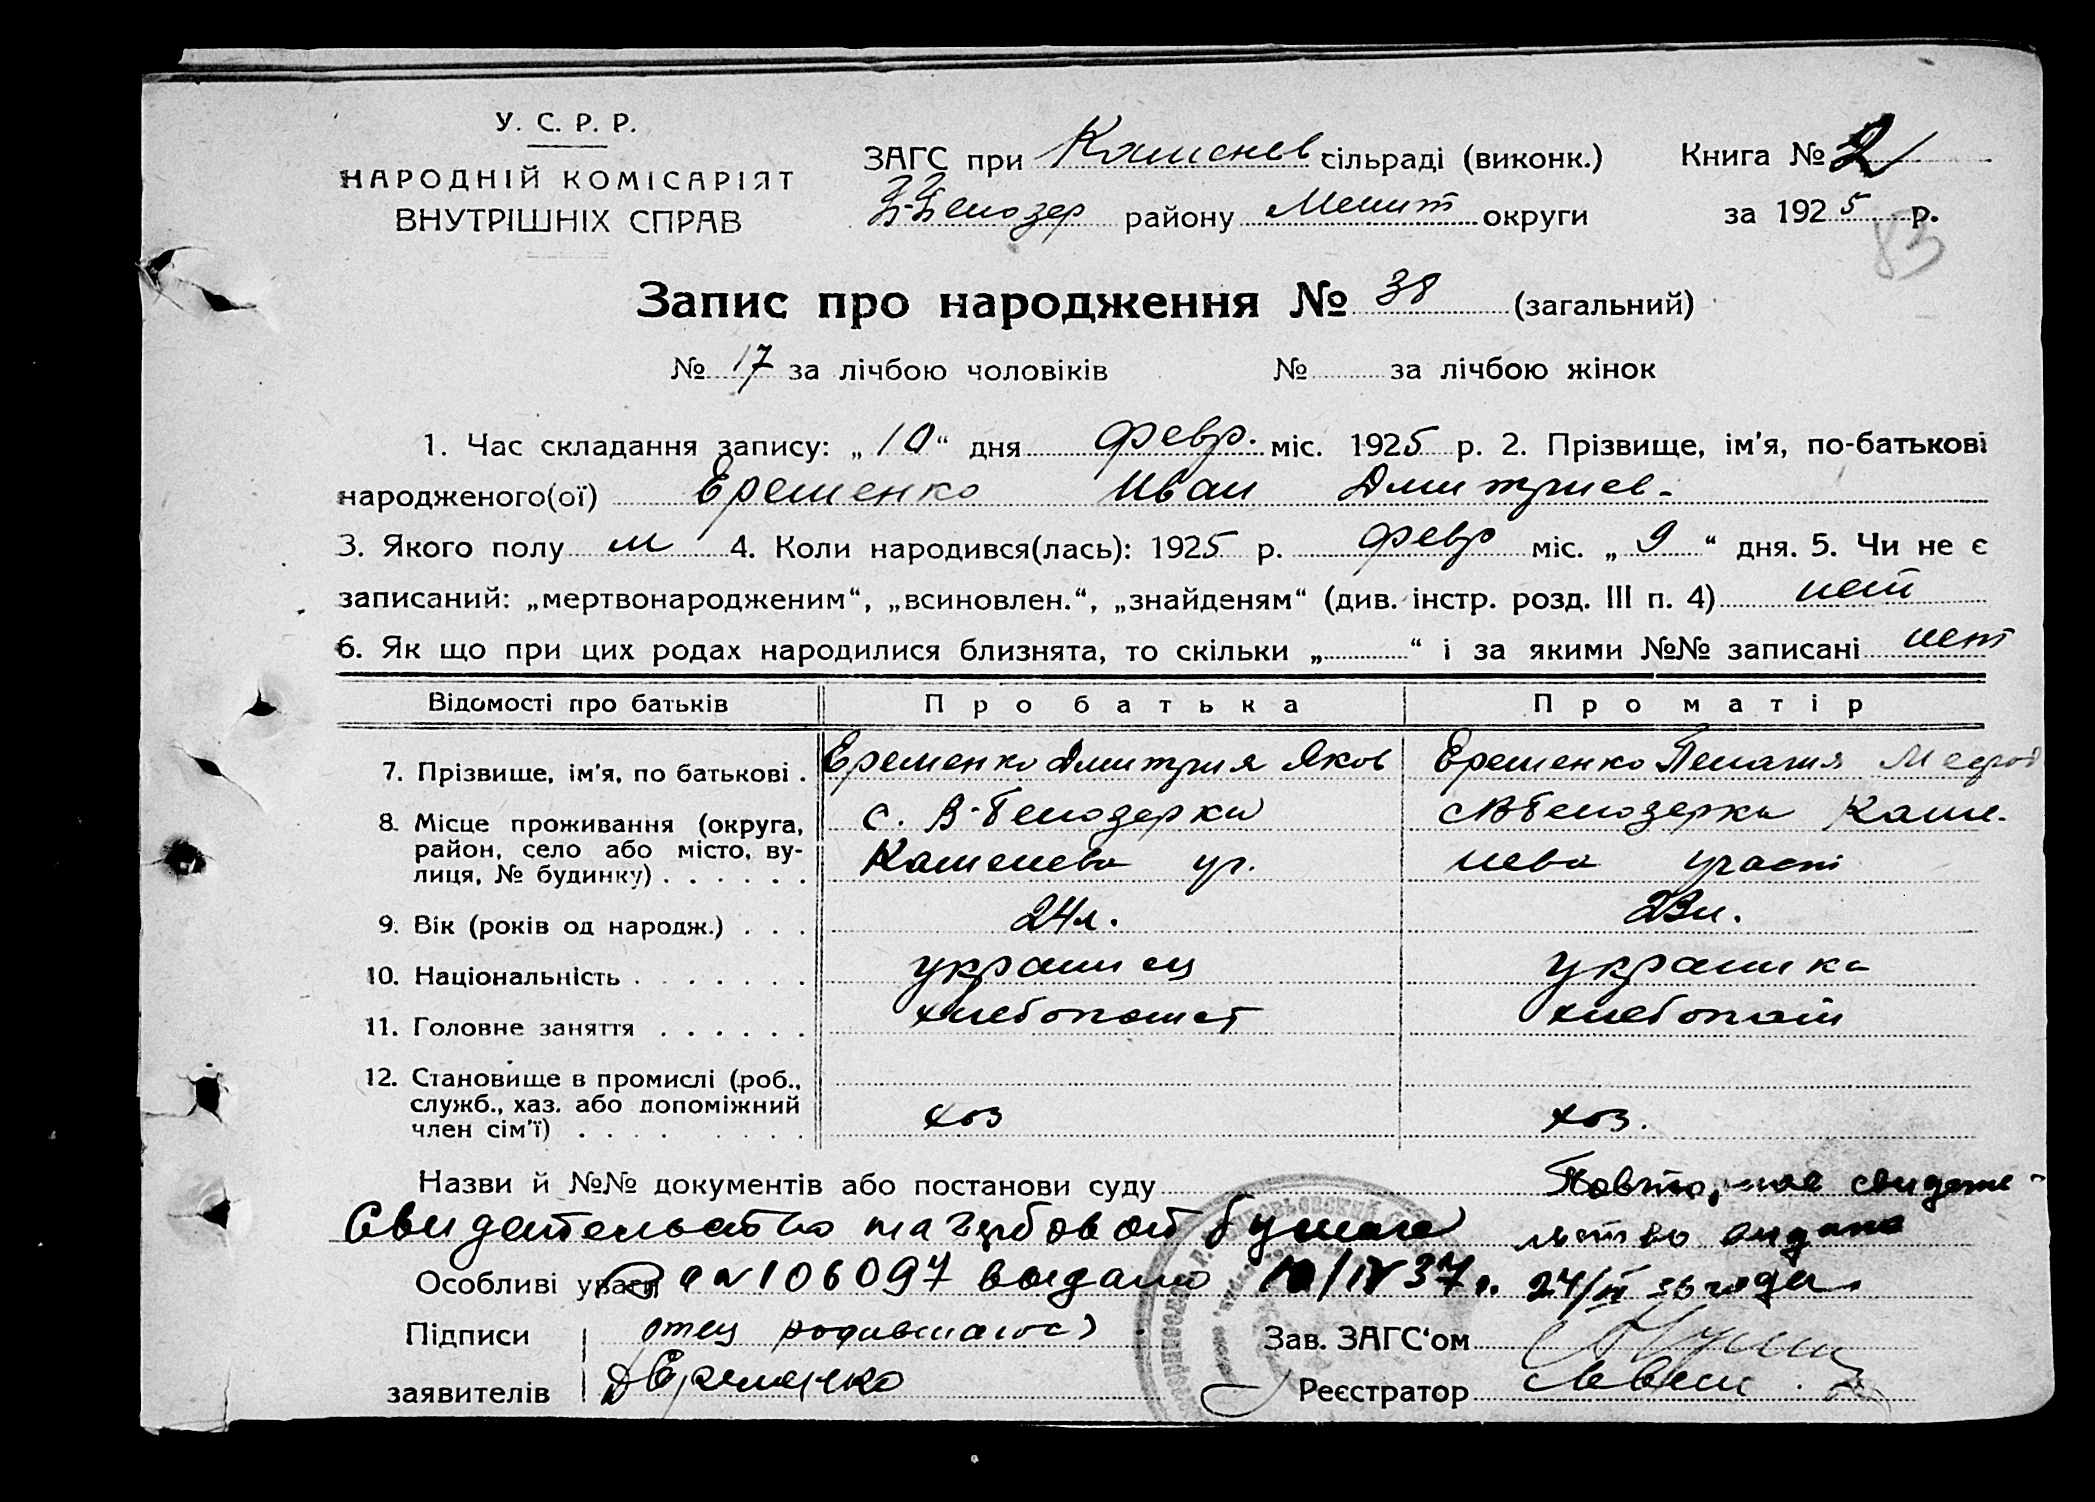 У. С. Р. Р.
НАРОДНІЙ КОМІСАРІЯТ
ВНУТРІШНІХ СПРАВ
ЗАГС при Каменев сільраді (виконк.)
В-Белозер району Мелит округи
Книга № 2
за 1925 р.
83
Запис про народження № 38 (загальний)
№ 17 за лічбою чоловіків № за лічбою жінок
1. Час складання запису: „10“ дня февр. міс. 1925 р. 2. Прізвище, ім'я, по-батькові
народженого(ої) Еременко Иван Дмитриев.
3. Якого полу м 4. Коли народився(лась): 1925 р. февр міс. „9“ дня. 5. Чи не є
записаний: „мертвонародженим“, „всиновлен.“, „знайденям“ (див. інстр. розд. III п. 4) нет
6. Як що при цих родах народилися близнята, то скільки „ “ і за якими №№ записані нет
Відомості про батьків Про батька Про матір
7. Прізвище, ім'я, по батькові . Еременко Дмитрия Яков Еременко Пелагия Мефод
8. Місце проживання (округа, с. В-Белозерки с В Белозерки Каме-
район, село або місто, ву- Каменева уч. нева участ
лиця, № будинку) . . . . . .
9. Вік (років од народж.) . . . 24л. 23л.
10. Національність . . . . . . . украинец украинка
11. Головне заняття . . . . . . хлебопашет хлебопаш
12. Становище в промислі (роб.,
служб., хаз. або допоміжний хоз хоз.
член сім'ї) . . . . . . . .
Назви й №№ документів або постанови суду Повторное свидете-
Свидетельство на гербовой бумаге льство выдано
Особливі уваги № 106097 выдано 10/IV 37г. 24/II 36 года.
Підписи отец родившагося Зав. ЗАГС'ом
заявителів Д Еременко Реєстратор